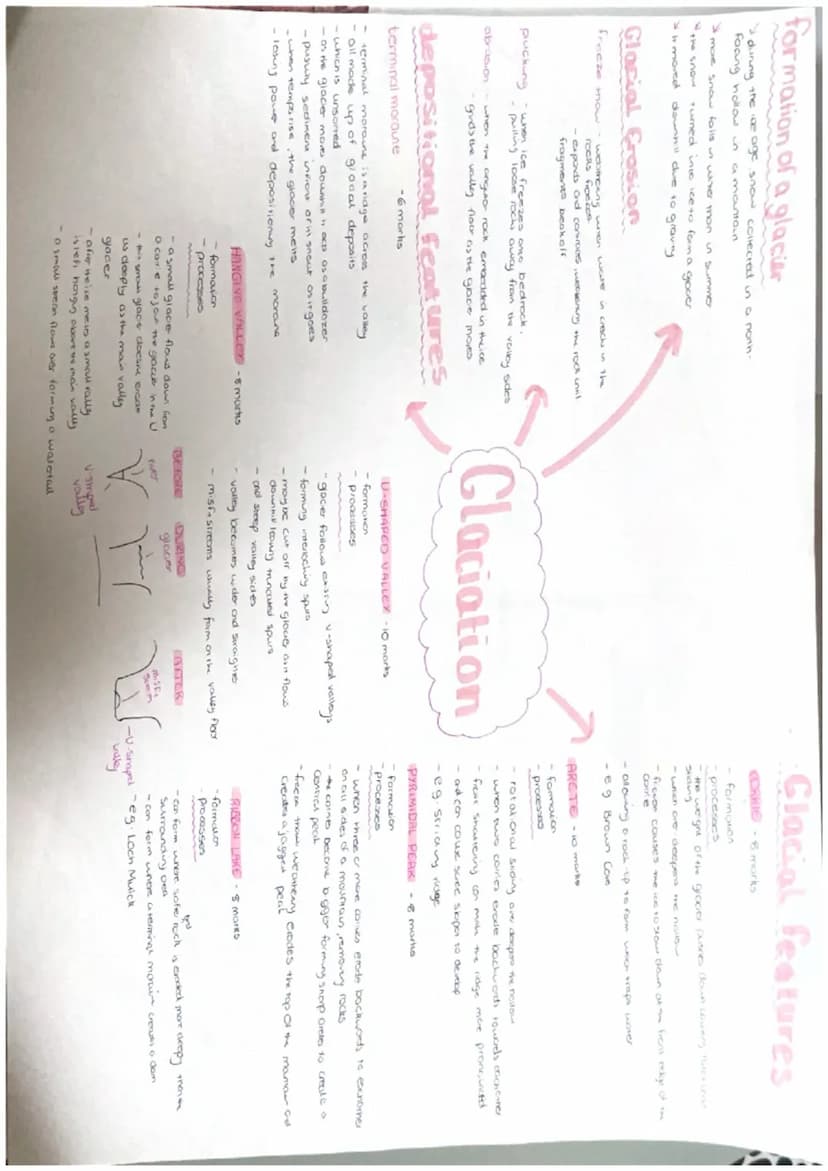 formation of a glacier
↘ during the ice age, snow collected in a north-
facing hollow in a mountain
↘ more snow falls in winter than in summer
↘ the snow turned into ice to form a glacier
↘ it moved downhill due to gravity
Glacial Erosion
freeze thaw - weathering when water in cracks in the
rocks freezes
- expands and contracts weakening the rock until
fragments break off
plucking - when ice freezes onto bedrock,
- pulling loose rocks away from the valley sides
abrasion - when the angular rock embedded in the ice
- grinds the valley floor as the glacier moves
depositional features
terminal moraine - 6 marks
- terminal moraine is a ridge across the valley
- all made up of glacial deposits
- which is unsorted
- as the glacier moves downhill it acts as a bulldozer
- pushing sediment infront of its snout as it goes
- when temps rise, the glacier melts
- losing power and depositioning the moraine
Glaciation
HANGING VALLEY - 8 marks
- formation
- processes
- a small glacier flows down from
a corrie to join the glacier in the U
- this small glacier doesn't erode
as deeply as the main valley
glacier
- after the ice melts a small valley
is left hanging above the main valley
- a small stream flows over forming a waterfall
U-SHAPED VALLEY - 10 marks
- formation
- processes
- glacier follows existing v-shaped valleys
- forming interlocking spurs
- may be cut off by the glacier as it flows
downhill leaving truncated spurs
- and steep valley sides
- valley becomes wider and straighter
- misfit streams usually form on the valley floor
BEFORE DURING AFTER
river
glacier
misfit
stream
V-shaped
valley
- U-shaped
valley
Glacial features
CORRIE - 8 marks
- formation
- processes
- the weight of the glacier pushes down
- when over deepens the hollow
- friction causes the ice to slow down at the front edge of the
corrie
- allowing a rock lip to form which traps water
- e.g Brown Cove
ARETE - 10 marks
- formation
- processes
- rotational sliding over deepens the hollow
- when two corries erode backwards towards each other
- frost shattering can make the ridge more pronounced
- and can cause scree slopes to develop
- e.g. Striding ridge
PYRAMIDAL PEAK - 8 marks
- formation
- processes
- when three or more corries erode backwards
on all sides of a mountain, removing rocks
- the corries become bigger forming sharp aretes to create a
central peak
- freeze thaw weathering erodes the top of the mountain and
creates a jagged peak
RIBBON LAKE - 8 marks
- formation
- processes
- can form where softer rock is eroded more deeply than the
surrounding area
- can form where a terminal moraine creates a dam
- e.g. Loch Muick